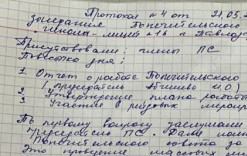 Протокол №4 от 21.05.
заседания Попечительского
школы-лицея №16 г. Павлодар
Присутствовали: члены ПС
Повестка дня:
1. Отчет о работе Попечительского
Председатель
2. Утверждение плана работы
3. Участие в разовых
По первому вопросу заслушали
Председателя ПС
Попечительского совета за
Это проведение массовых